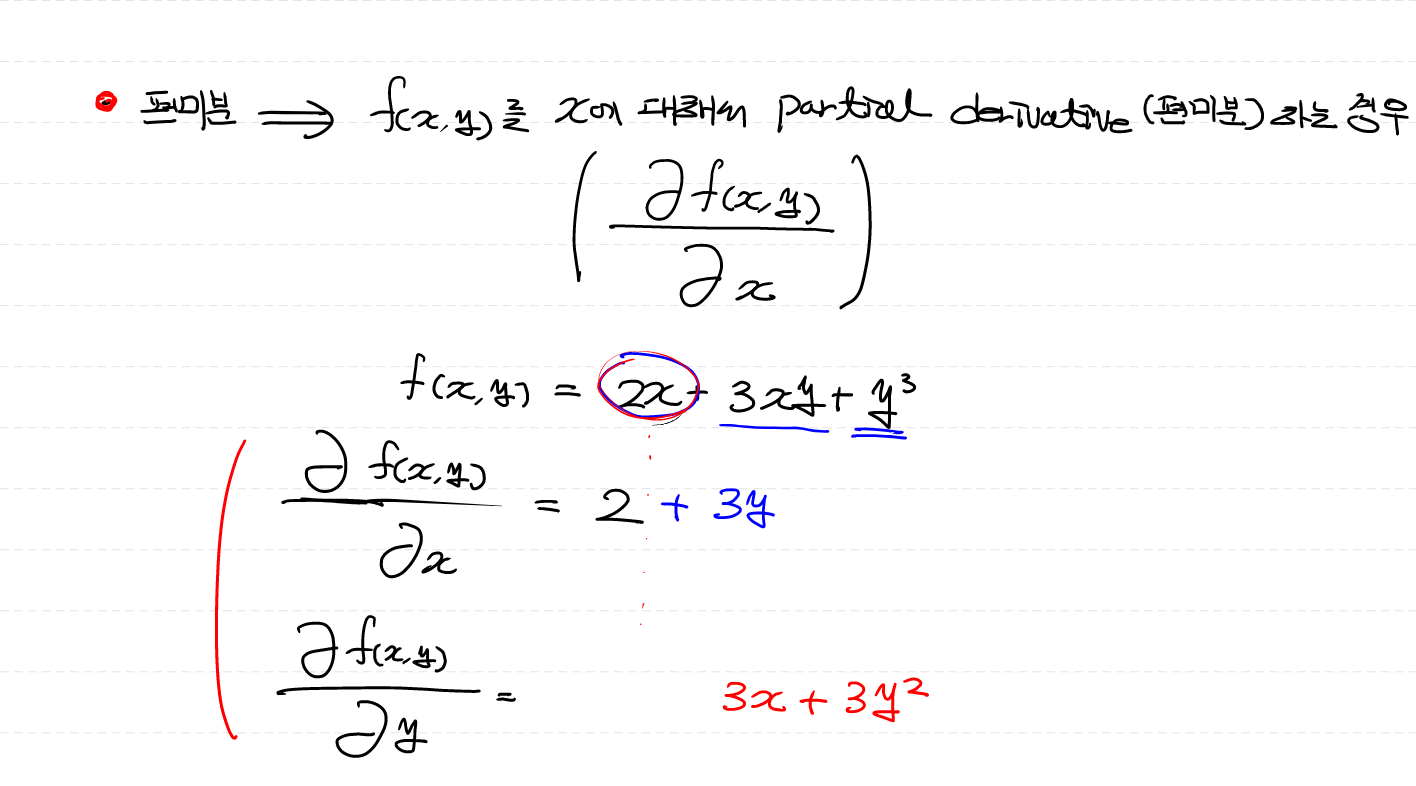 편미분 ⟹ f(x,y)를 x에 대해서 partial derivative (편미분) 하는 경우
(∂f(x,y)/∂x)
f(x,y) = 2x + 3xy + y³
∂f(x,y)/∂x = 2 + 3y
∂f(x,y)/∂y = 3x + 3y²